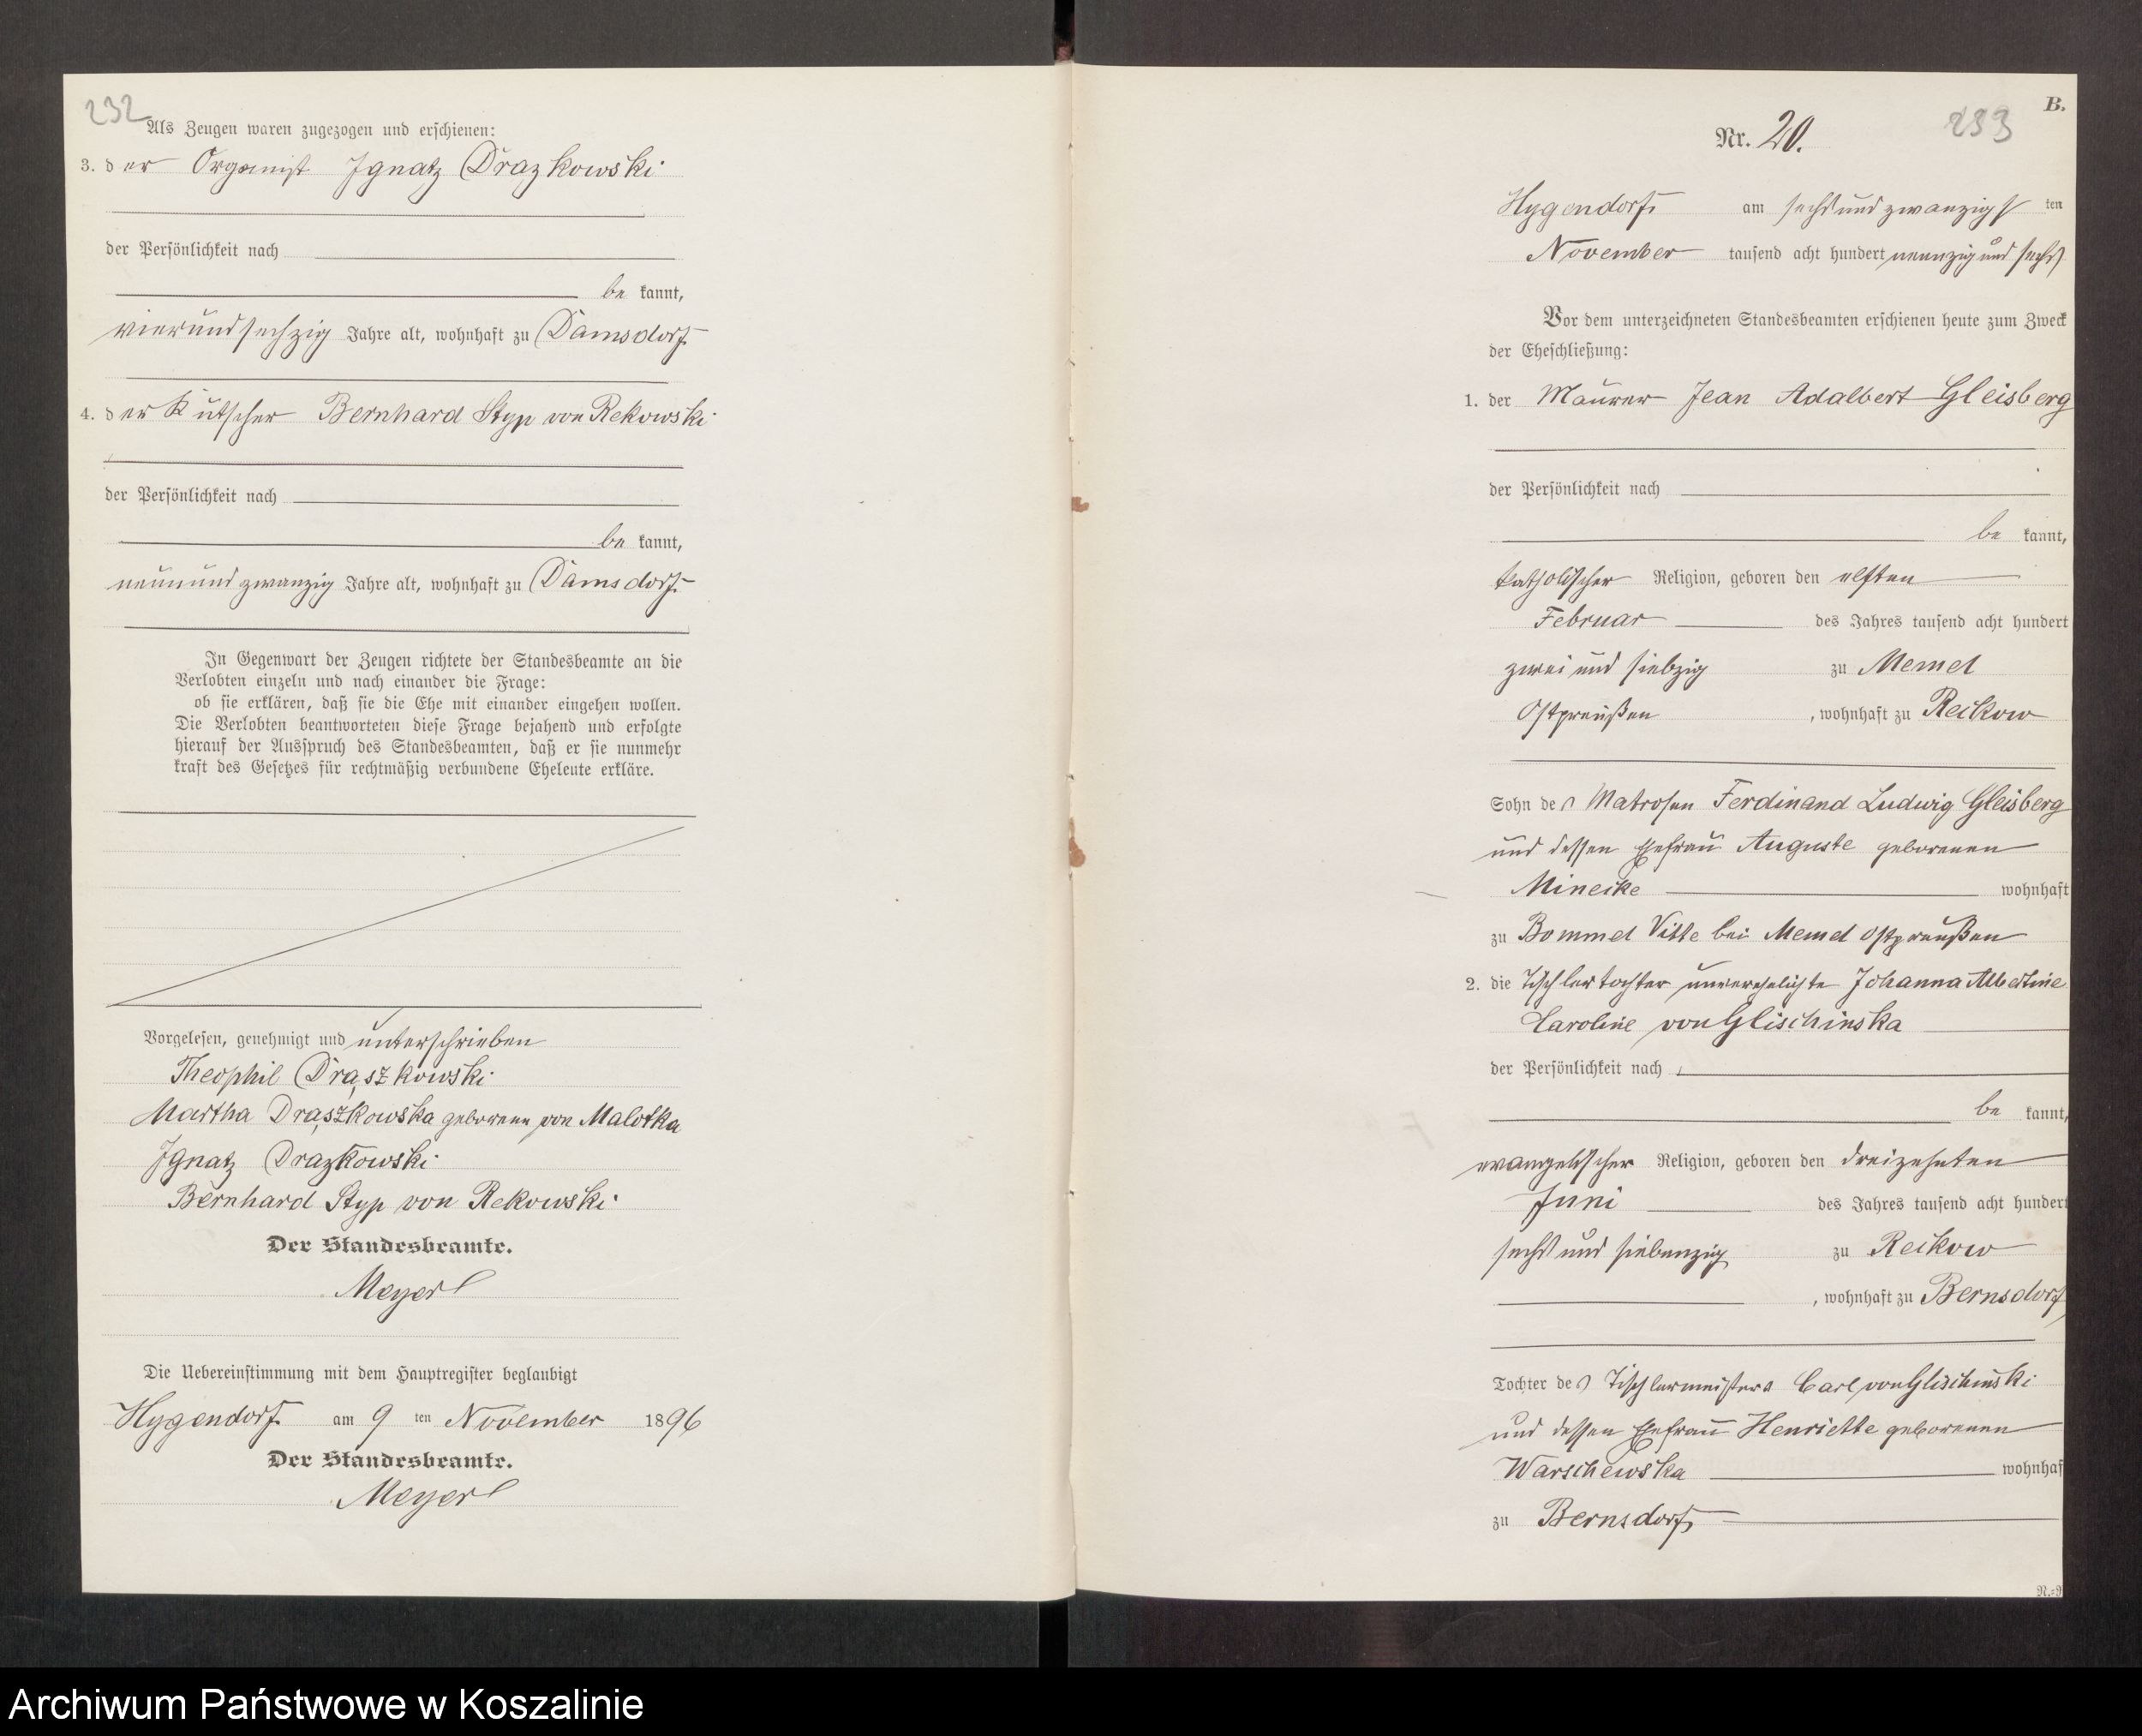 232
Als Zeugen waren zugezogen und erschienen:
3. der Organist Ignatz Drazkowski
der Persönlichkeit nach
be kannt,
vierundsechzig Jahre alt, wohnhaft zu Damsdorf
4. der Kutscher Bernhard Styp von Rekowski
der Persönlichkeit nach
be kannt,
neunundzwanzig Jahre alt, wohnhaft zu Damsdorf
In Gegenwart der Zeugen richtete der Standesbeamte an die
Verlobten einzeln und nach einander die Frage:
ob sie erklären, daß sie die Ehe mit einander eingehen wollen.
Die Verlobten beantworteten diese Frage bejahend und erfolgte
hierauf der Ausspruch des Standesbeamten, daß er sie nunmehr
kraft des Gesetzes für rechtmäßig verbundene Eheleute erkläre.
Vorgelesen, genehmigt und unterschrieben
Theophil Drąszkowski
Martha Drąszkowska geborene von Malotka
Ignatz Drazkowski
Bernhard Styp von Rekowski
Der Standesbeamte.
Meyer
Die Uebereinstimmung mit dem Hauptregister beglaubigt
Hygendorf am 9 ten November 1896
Der Standesbeamte.
Meyer
B.
Nr. 20. 233
Hygendorf am sechsundzwanzigsten
November tausend acht hundert neunzig und sechs
Vor dem unterzeichneten Standesbeamten erschienen heute zum Zweck
der Eheschließung:
1. der Maurer Jean Adalbert Gleisberg
der Persönlichkeit nach
be kannt,
katholischer Religion, geboren den elften
Februar des Jahres tausend acht hundert
zwei und siebzig zu Memel
Ostpreußen , wohnhaft zu Reckow
Sohn des Matrosen Ferdinand Ludwig Gleisberg
und dessen Ehefrau Auguste geborenen
Mineike wohnhaft
zu Bommel Vitte bei Memel Ostpreußen
2. die Tischlertochter unverehelichte Johanna Albertine
Caroline von Glischinska
der Persönlichkeit nach
be kannt,
evangelischer Religion, geboren den dreizehnten
Juni des Jahres tausend acht hundert
sechs und siebenzig zu Reckow
, wohnhaft zu Bernsdorf
Tochter des Tischlermeisters Carl von Glischinski
und dessen Ehefrau Henriette geborenen
Warschewska wohnhaf
zu Bernsdorf
Archiwum Państwowe w Koszalinie